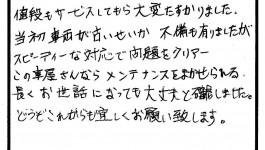 値段もサービスしてもらい大変たすかりました。
当初 車両が古いせいか 不備も有りましたが
スピーディーな対応で問題をクリアー
この車屋さんなら メンテナンスをまかせられる
長く お世話になっても大丈夫と確認しました。
どうぞこれからも宜しくお願い致します。